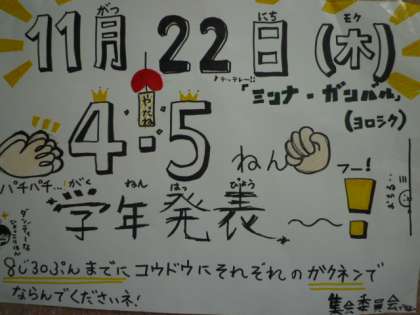 がつ にち モク
11月22日(木)
テッテレー!!
「ミンナ・ガンバル」
(ヨロシク)
やだね
4・5ねん
パチパチ…
フー!
がく ねん はっ ぴょう
学年発表〜〜!
8じ30ぷんまでにコウドウにそれぞれのガクネンで
ならんでくださいネ!
集会委員会